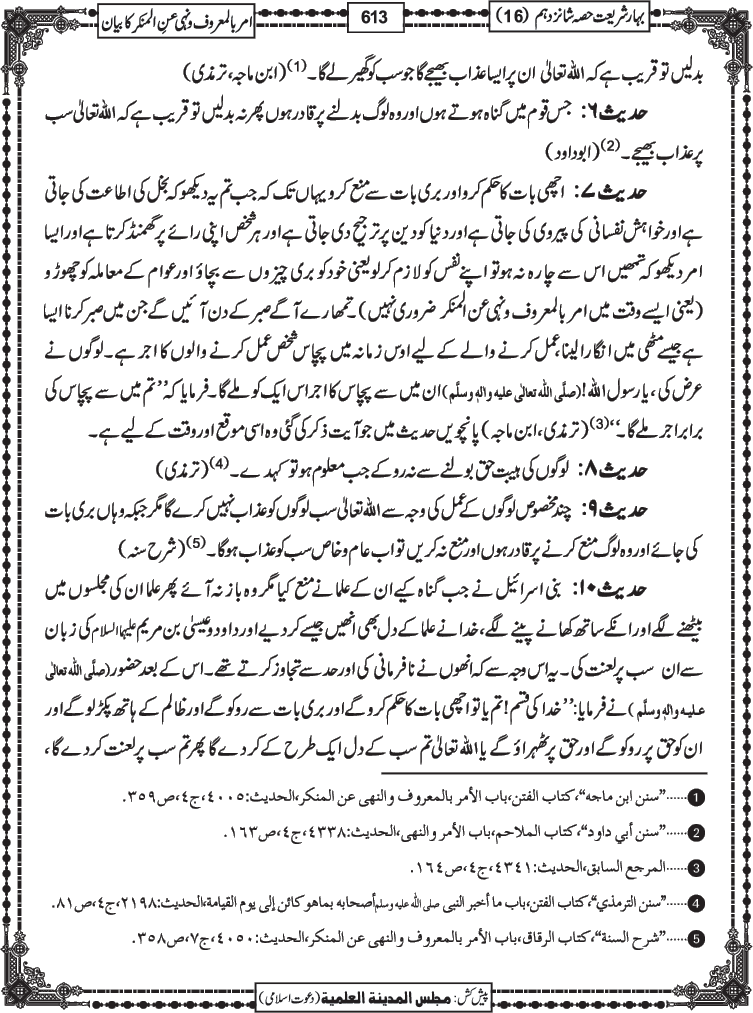 بہار شریعت حصہ شانزدہم (16)
613
امر بالمعروف ونہی عن المنکر کا بیان
بدلیں تو قریب ہے کہ اللہ تعالیٰ ان پر ایسا عذاب بھیجے گا جو سب کو گھیر لے گا۔(1) (ابن ماجہ، ترمذی)
حدیث ۶: جس قوم میں گناہ ہوتے ہوں اور وہ لوگ بدلنے پر قادر ہوں پھر نہ بدلیں تو قریب ہے کہ اللہ تعالیٰ سب
پر عذاب بھیجے۔(2) (ابوداود)
حدیث ۷: اچھی بات کا حکم کرو اور بری بات سے منع کرو یہاں تک کہ جب تم یہ دیکھو کہ بخل کی اطاعت کی جاتی
ہے اور خواہش نفسانی کی پیروی کی جاتی ہے اور دنیا کو دین پر ترجیح دی جاتی ہے اور ہر شخص اپنی رائے پر گھمنڈ کرتا ہے اور ایسا
امر دیکھو کہ تمھیں اس سے چارہ نہ ہو تو اپنے نفس کو لازم کرلو یعنی خود کو بری چیزوں سے بچاؤ اور عوام کے معاملہ کو چھوڑو
(یعنی ایسے وقت میں امر بالمعروف ونہی عن المنکر ضروری نہیں)۔ تمھارے آگے صبر کے دن آئیں گے جن میں صبر کرنا ایسا
ہے جیسے مٹھی میں انگارا لینا، عمل کرنے والے کے لیے اوس زمانہ میں پچاس شخص عمل کرنے والوں کا اجر ہے۔ لوگوں نے
عرض کی، یارسول اللہ! (صلَّی اللہ تعالٰی علیہ واٰلہٖ وسلَّم) ان میں سے پچاس کا اجر اس ایک کو ملے گا۔ فرمایا کہ ”تم میں سے پچاس کی
برابر اجر ملے گا۔“(3) (ترمذی، ابن ماجہ) پانچویں حدیث میں جو آیت ذکر کی گئی وہ اسی موقع اور وقت کے لیے ہے۔
حدیث ۸: لوگوں کی ہیبت حق بولنے سے نہ روکے جب معلوم ہو تو کہدے۔(4) (ترمذی)
حدیث ۹: چند مخصوص لوگوں کے عمل کی وجہ سے اللہ تعالیٰ سب لوگوں کو عذاب نہیں کرے گا مگر جبکہ وہاں بری بات
کی جائے اور وہ لوگ منع کرنے پر قادر ہوں اور منع نہ کریں تو اب عام و خاص سب کو عذاب ہوگا۔(5) (شرح سنہ)
حدیث ۱۰: بنی اسرائیل نے جب گناہ کیے ان کے علما نے منع کیا مگر وہ باز نہ آئے پھر علما ان کی مجلسوں میں
بیٹھنے لگے اور انکے ساتھ کھانے پینے لگے، خدا نے علما کے دل بھی انھیں جیسے کردیے اور داود و عیسیٰ بن مریم علیہما السلام کی زبان
سے ان سب پر لعنت کی۔ یہ اس وجہ سے کہ انھوں نے نافرمانی کی اور حد سے تجاوز کرتے تھے۔ اس کے بعد حضور (صلَّی اللہ تعالٰی
علیہ واٰلہٖ وسلَّم) نے فرمایا: ”خدا کی قسم! تم یا تو اچھی بات کا حکم کروگے اور بری بات سے روکوگے اور ظالم کے ہاتھ پکڑلوگے اور
ان کو حق پر روکوگے اور حق پر ٹھہراؤگے یا اللہ تعالیٰ تم سب کے دل ایک طرح کے کردے گا پھر تم سب پر لعنت کردے گا،
1 ......”سنن ابن ماجہ“، کتاب الفتن، باب الأمر بالمعروف والنھی عن المنکر، الحدیث: ٤٠٠٥، ج٤، ص٣٥٩.
2 ......”سنن أبي داود“، کتاب الملاحم، باب الأمر والنھی، الحدیث: ٤٣٣٨، ج٤، ص١٦٣.
3 ......المرجع السابق، الحدیث: ٤٣٤١، ج٤، ص١٦٤.
4 ......”سنن الترمذي“، کتاب الفتن، باب ما أخبر النبی صلی اللہ علیہ وسلم أصحابہ بماھو کائن إلی یوم القیامۃ، الحدیث: ٢١٩٨، ج٤، ص٨١.
5 ......”شرح السنۃ“، کتاب الرقاق، باب الأمر بالمعروف والنھی عن المنکر، الحدیث: ٤٠٥٠، ج٧، ص٣٥٨.
پیش کش: مجلس المدینۃ العلمیۃ (دعوت اسلامی)